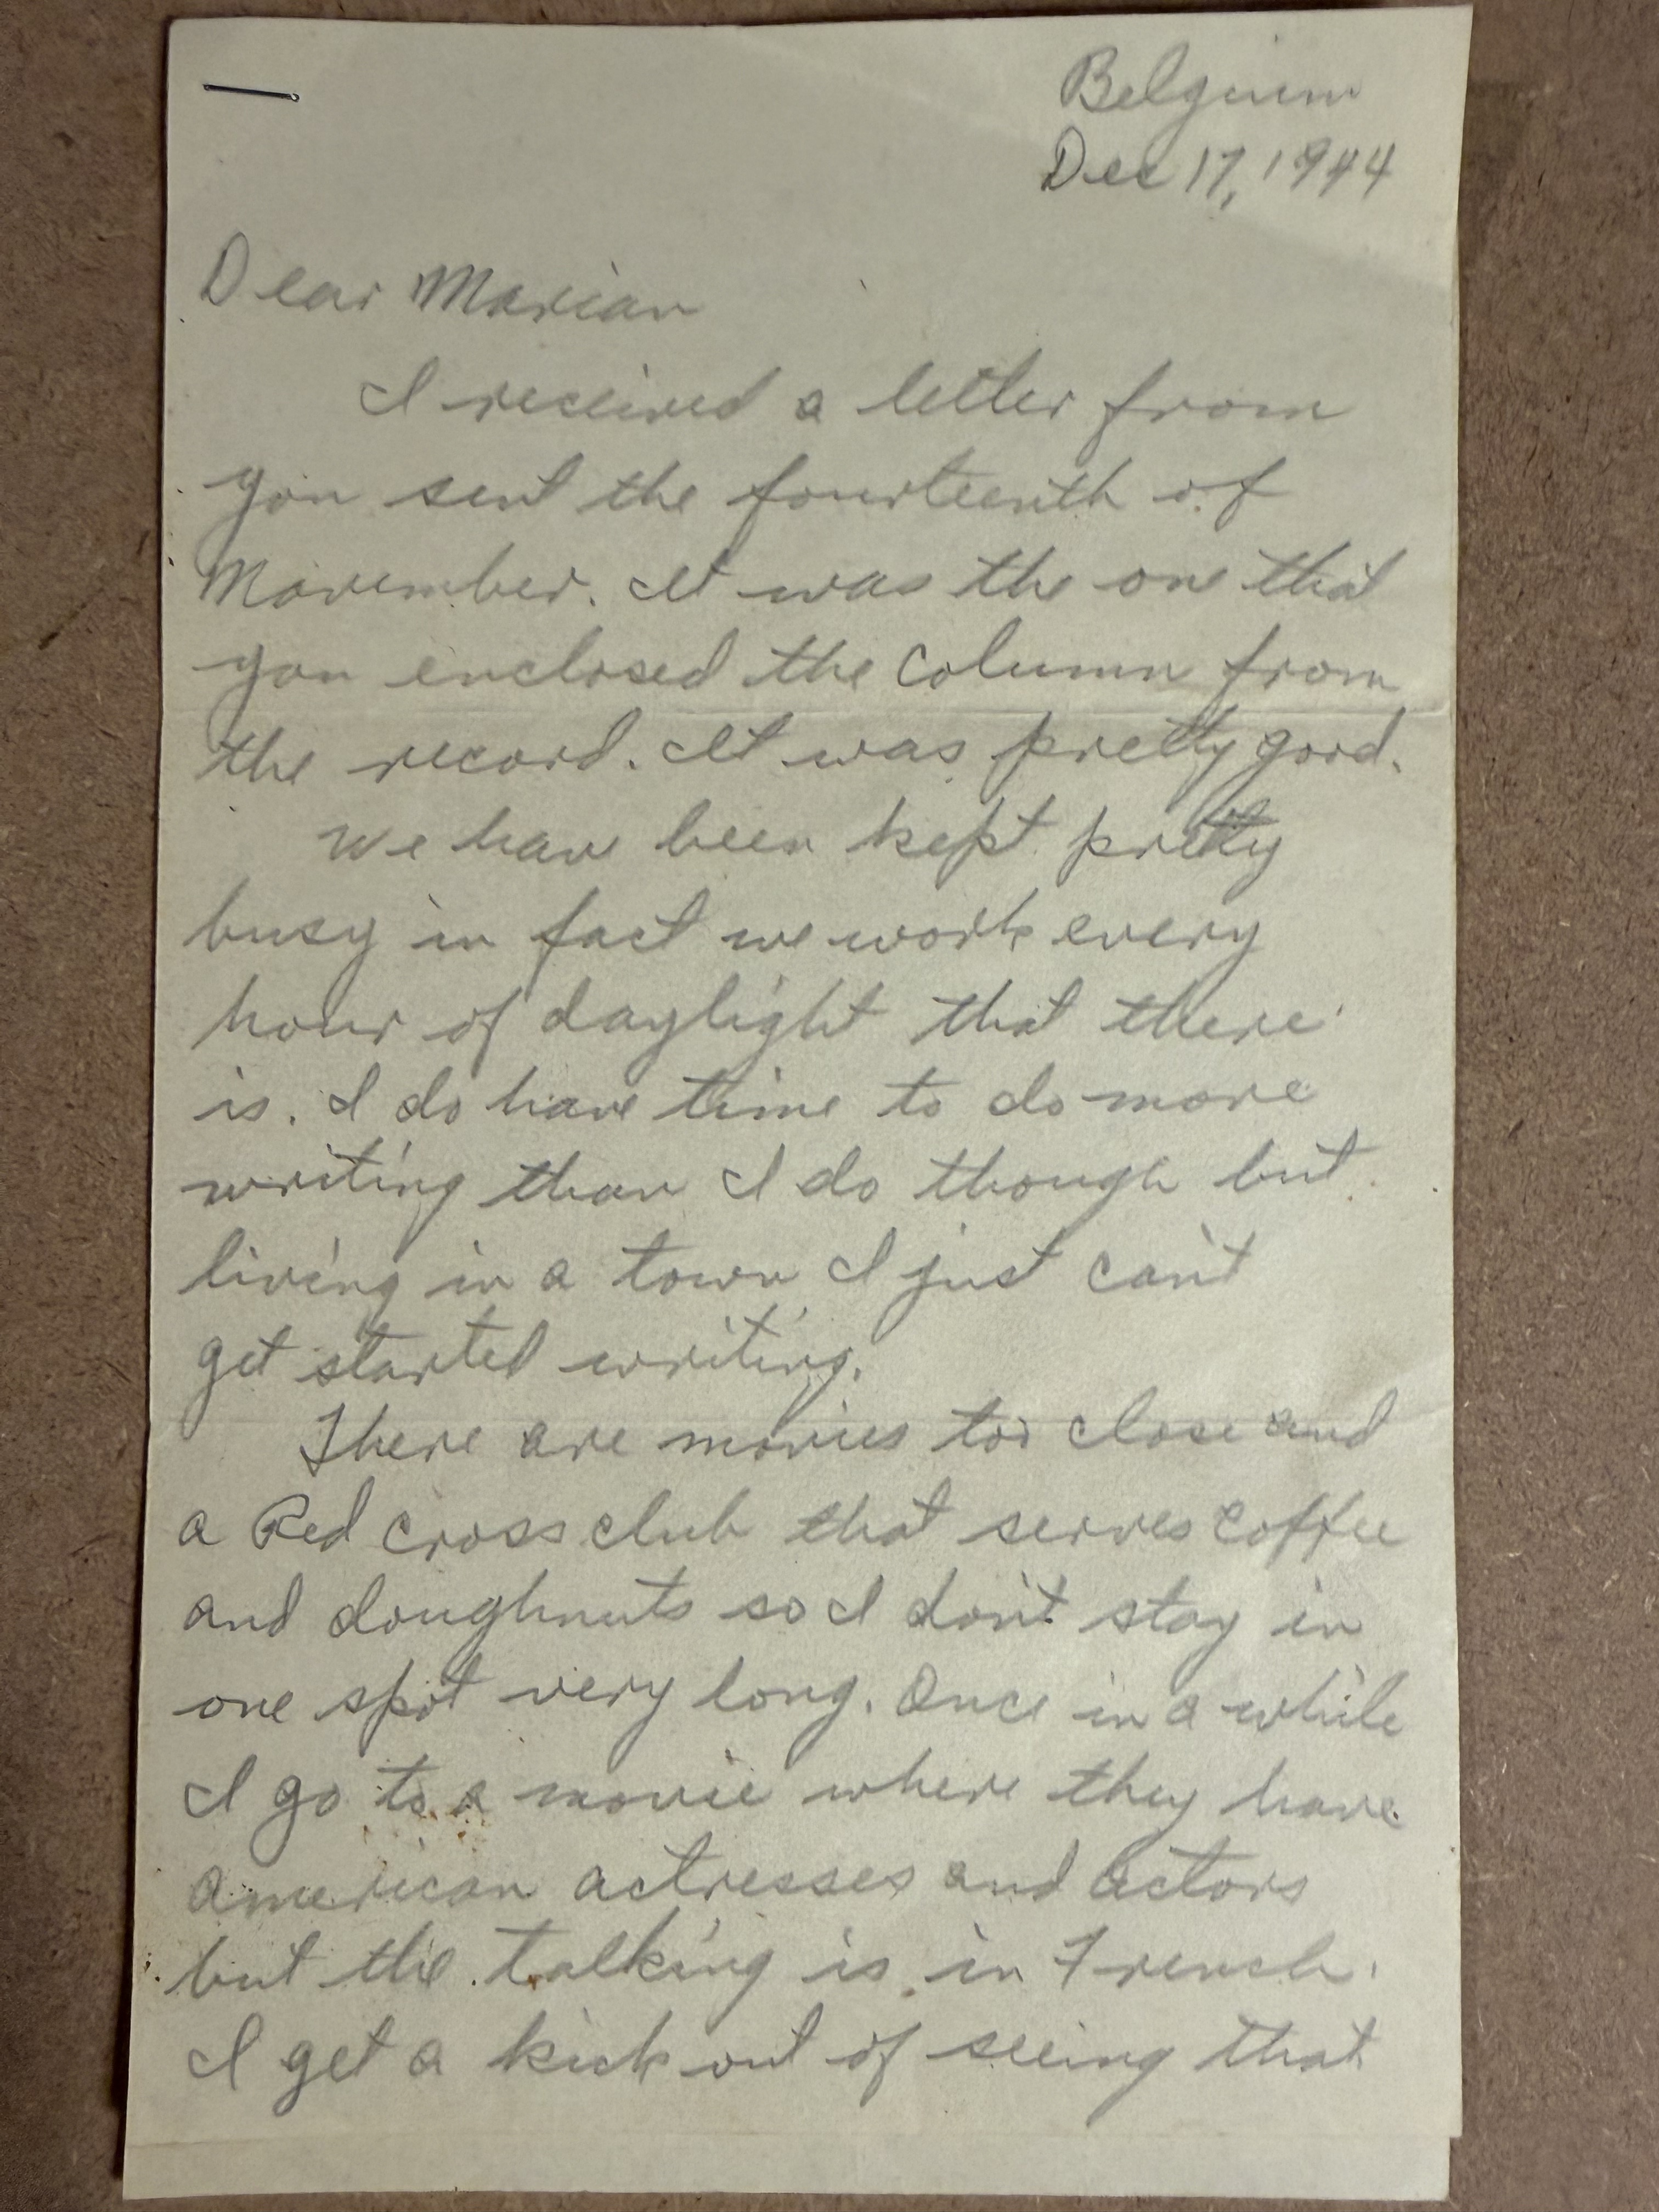 Belgium
Dec 17, 1944
Dear Marian
I received a letter from
you sent the fourteenth of
November. It was the one that
you enclosed the column from
the record. It was pretty good.
We have been kept pretty
busy in fact we work every
hour of daylight that there
is. I do have time to do more
writing than I do though but
living in a town I just can't
get started writing.
There are movies too close and
a Red cross club that serves coffee
and doughnuts so I don't stay in
one spot very long. Once in a while
I go to a movie where they have
American actresses and actors
but the talking is in French.
I get a kick out of seeing that